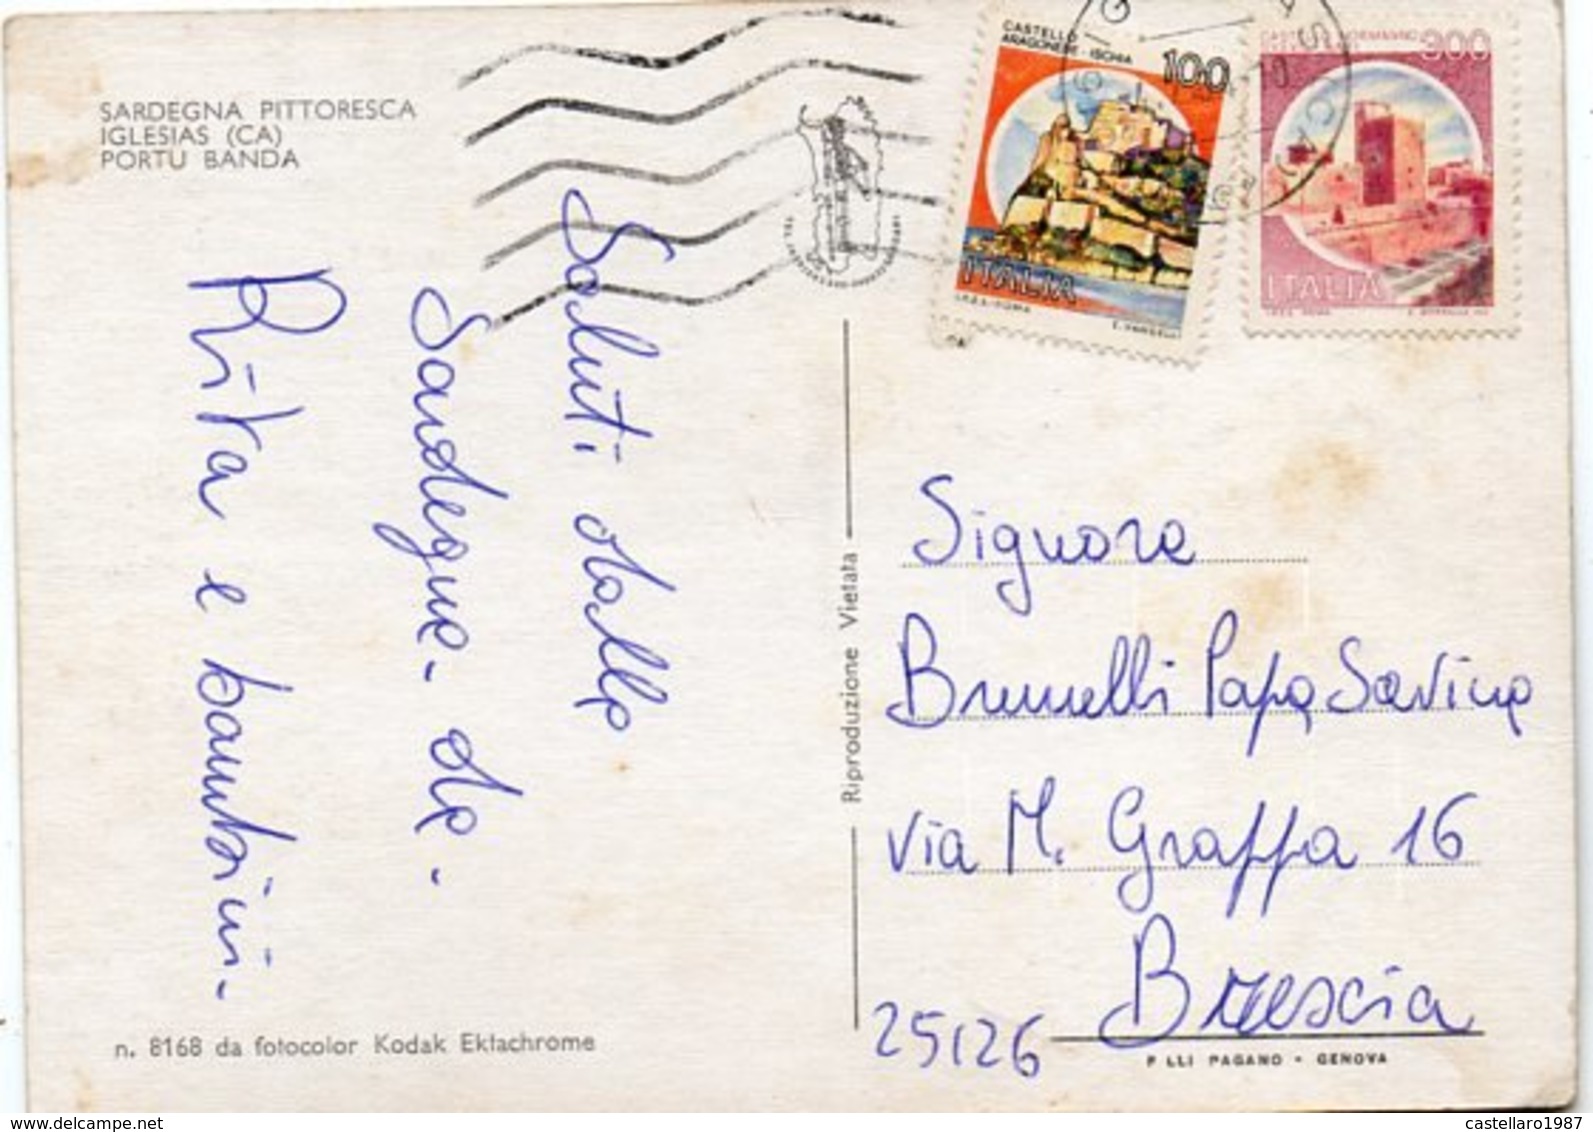 SARDEGNA PITTORESCA
IGLESIAS (CA)
PORTU BANDA
Saluti dalla
Sardegna - da -
Rita e bambini -
n. 8168 da fotocolor Kodak Ektachrome
Riproduzione Vietata
CASTELLO
ARAGONESE - ISCHIA
100
ITALIA
I.P.Z.S. - ROMA
300
ITALIA
Signora
Brunelli Papa Savina
via M. Grappa 16
Brescia
25126
F LLI PAGANO - GENOVA
castellaro1987